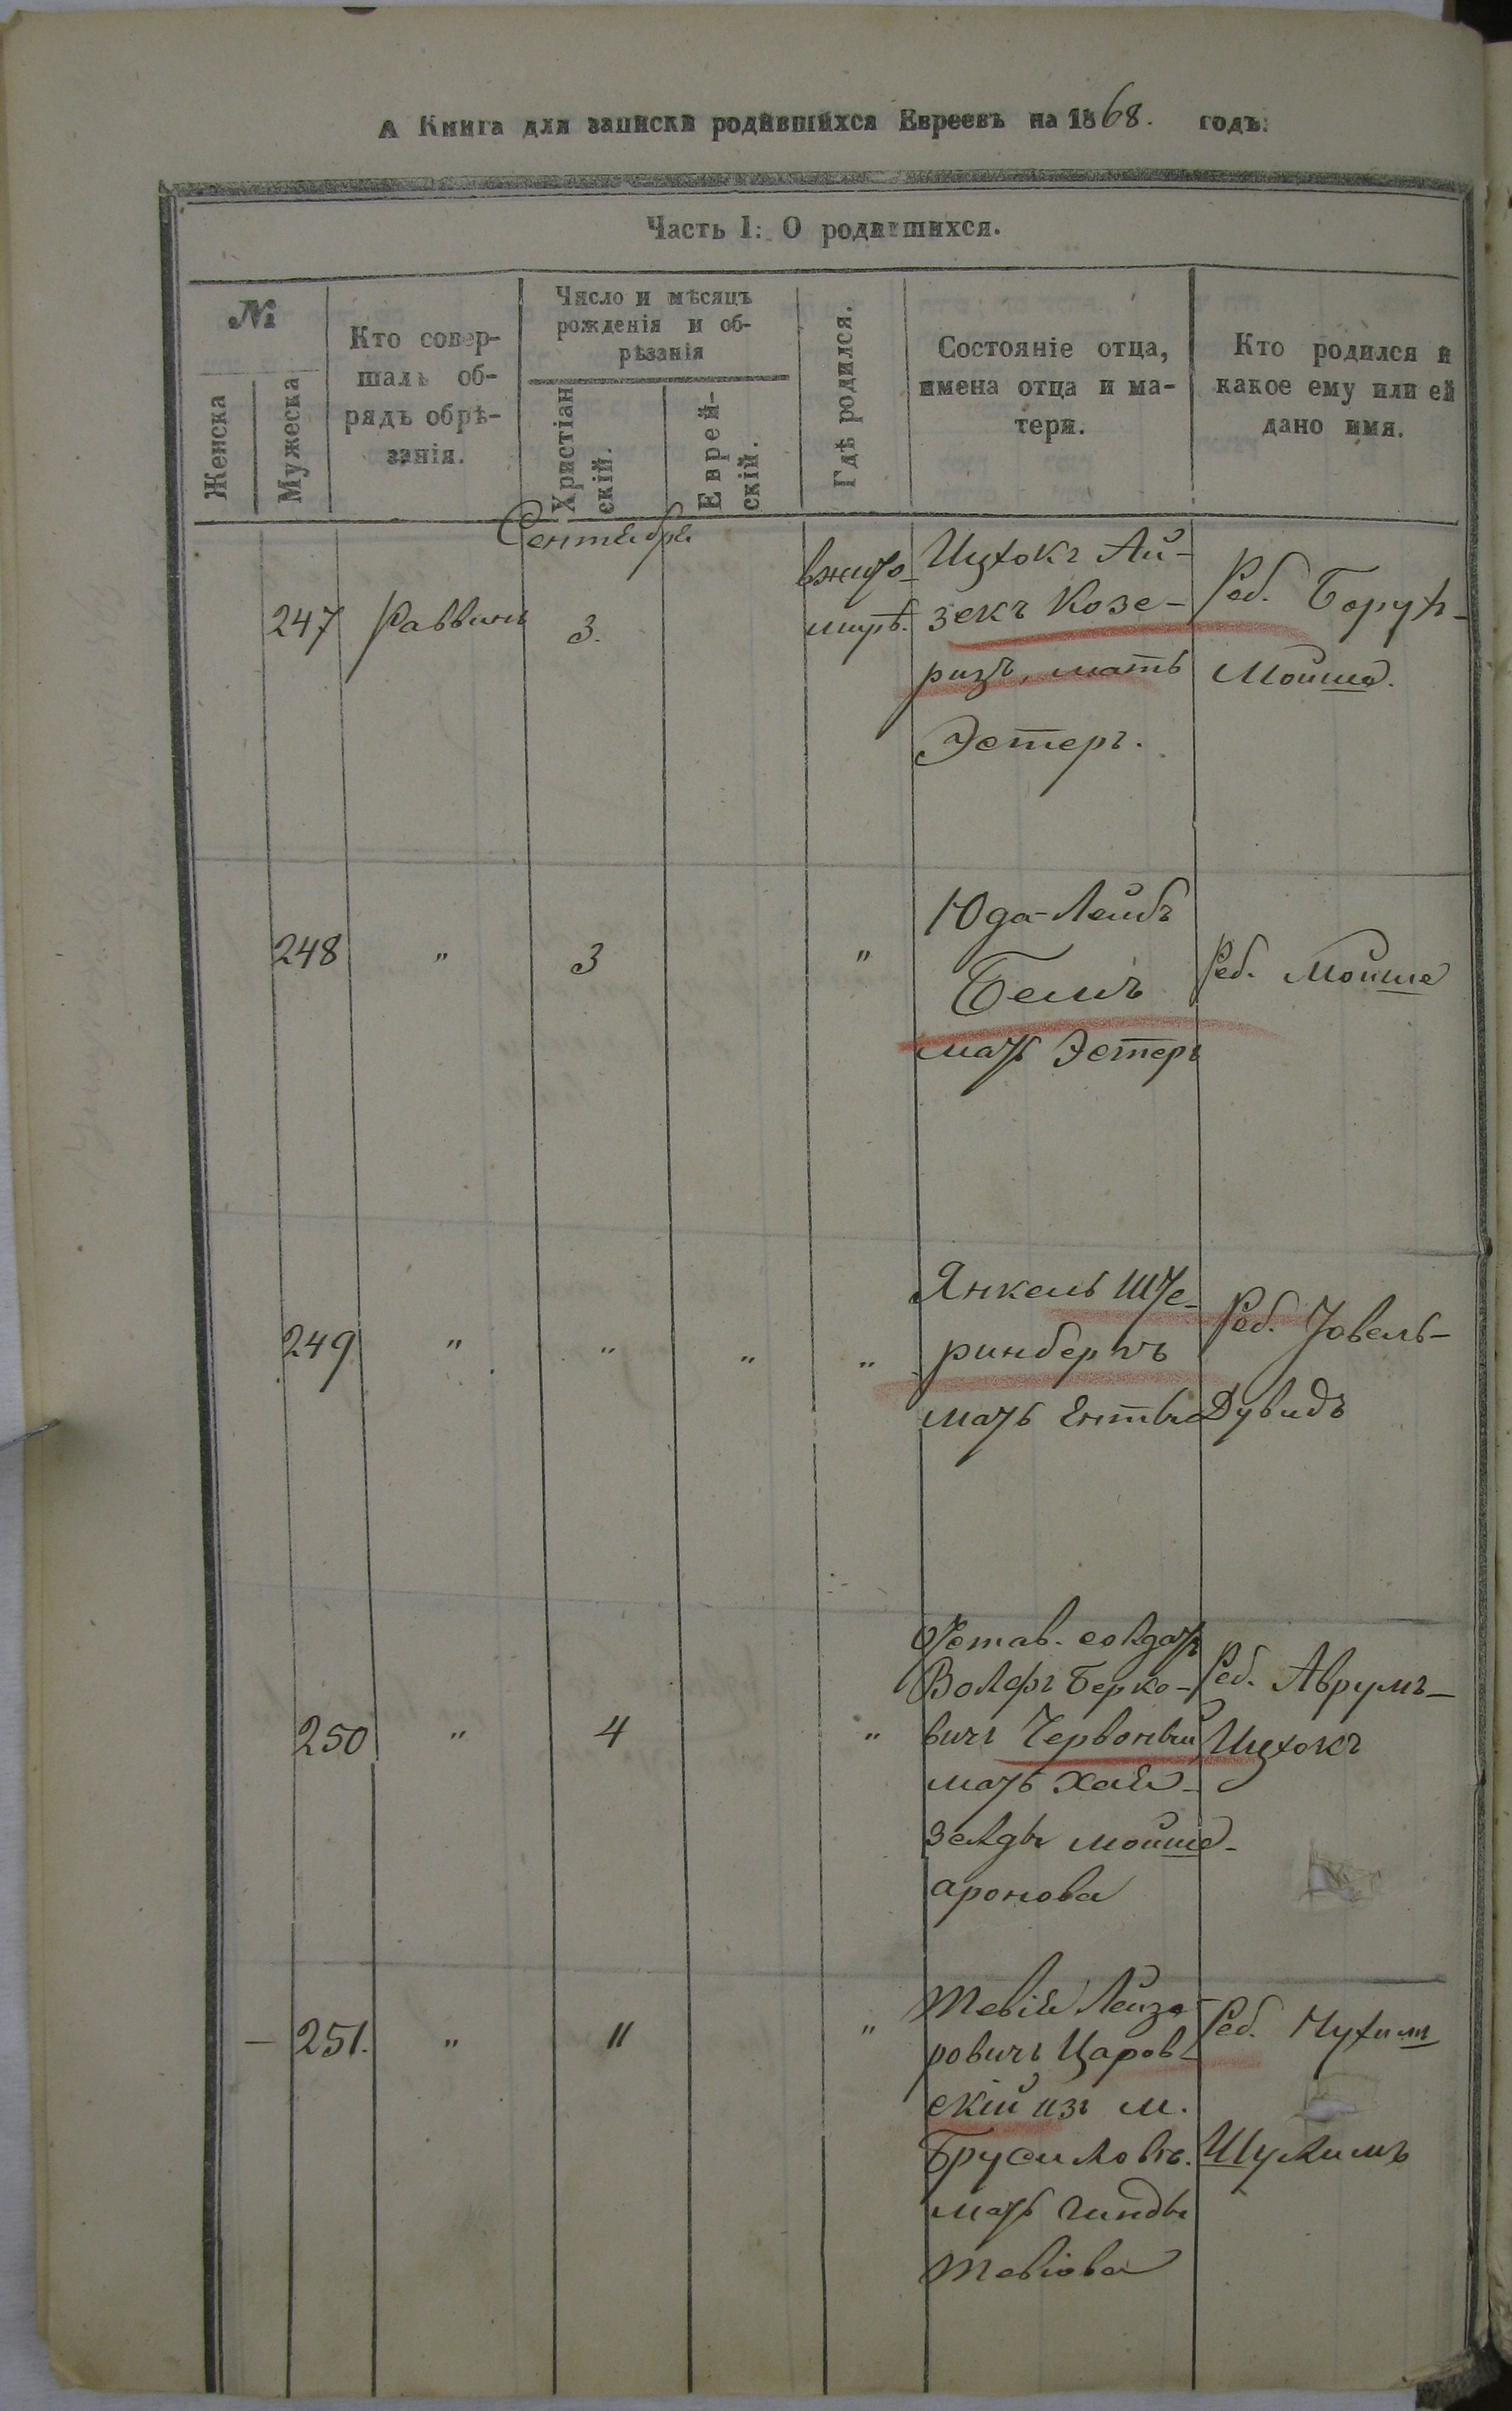 А Книга для записки родившихся Евреевъ на 1868. годъ:
Часть I: О родившихся.
№
Женска
Мужеска
Кто совер-
шалъ об-
рядъ обрѣ-
занія.
Число и мѣсяцъ
рожденія и об-
рѣзанія
Христіан
скій.
Еврей-
скій.
Гдѣ родился.
Состояніе отца,
имена отца и ма-
тери.
Кто родился и
какое ему или ей
дано имя.
Сентября
247 Раввинъ 3.
вжито-
мирѣ.
Ицхокъ Ай-
зекъ Козе-
ризъ, мать
Эстеръ.
Реб. Борухъ-
Мойше.
248 " 3 "
Юда-Лейбъ
Бемъ
мать Эстеръ
Реб. Мойше
249 " " " "
Янкель Ште-
ринбергъ
мать Ентя
Реб. Іовель-
Дувидъ
250 " 4 "
Отстав. солдатъ
Волфъ Берко-
вичъ Червоный
мать Хая-
Зелды Мойше-
аронова
Реб. Аврумъ-
Ицхокъ
- 251. " 11 "
Тевія Лейзе-
ровичъ Царов-
скій изъ м.
Брусиловъ.
мать Гинды
Тевіова
Реб. Нухим
Шулимъ